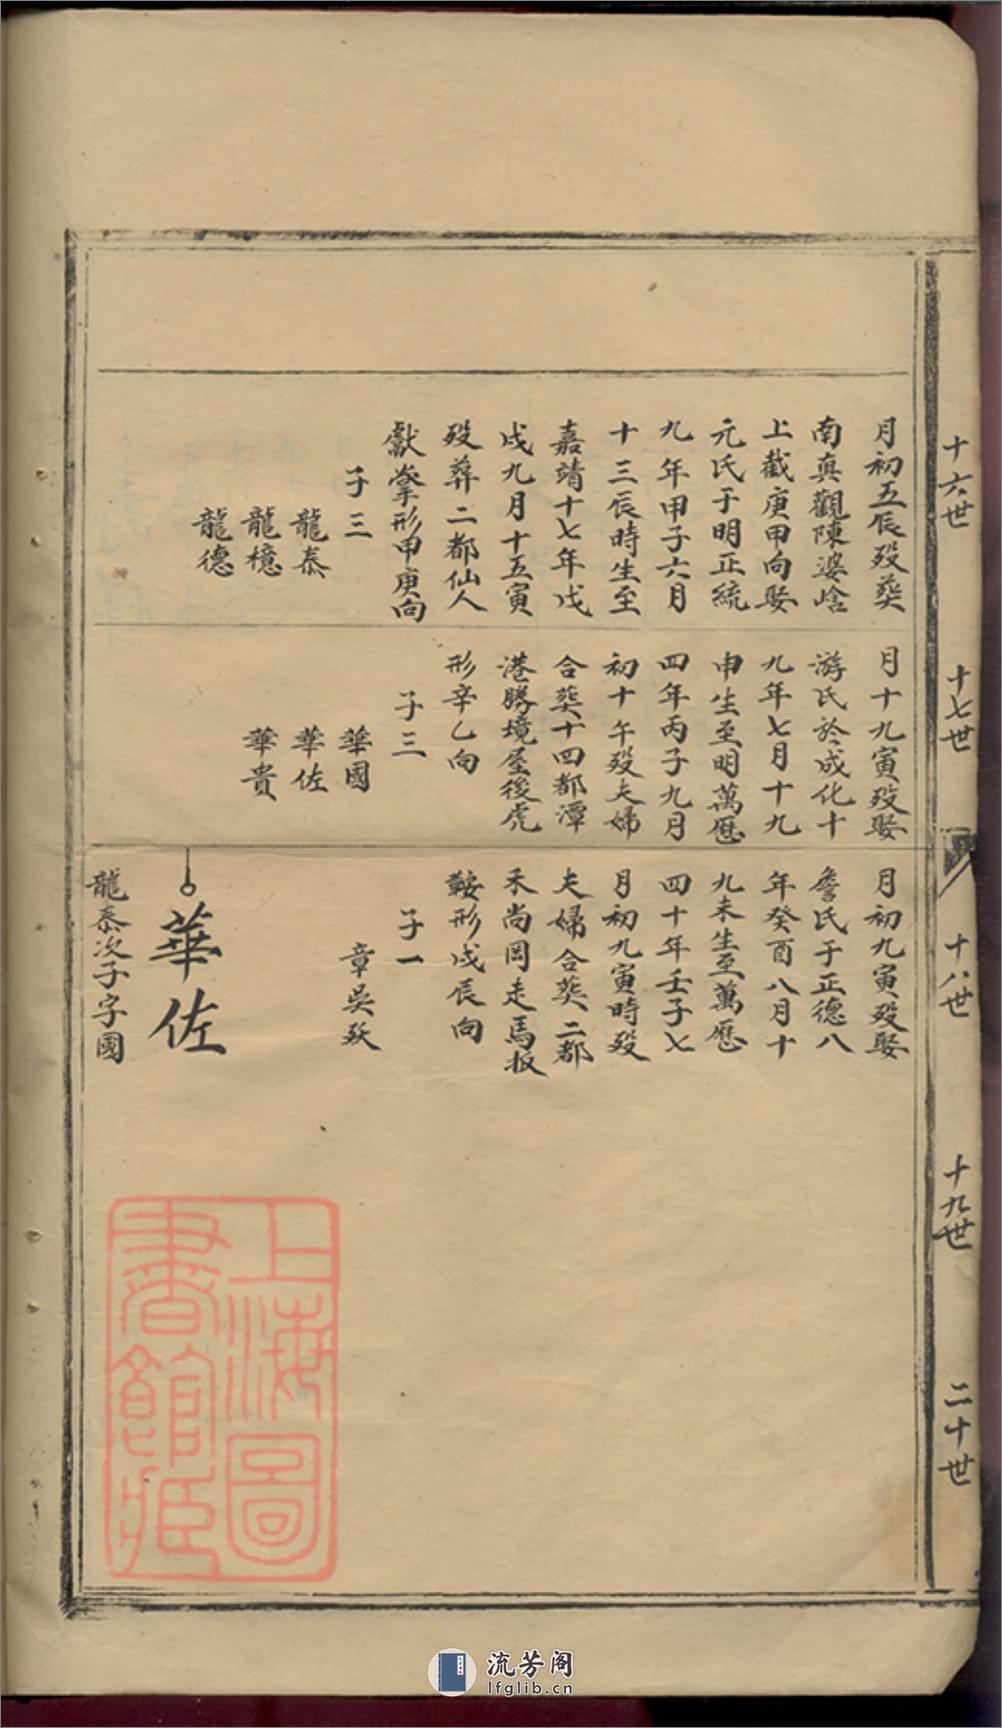 十六世
月初五辰殁葬
南真觀陳婆峆
上截庚甲向娶
元氏于明正統
九年甲子六月
十三辰時生至
嘉靖十七年戊
戌九月十五寅
殁葬二都仙人
獻掌形甲庚向
子三
龍泰
龍檍
龍德
十七世
月十九寅殁娶
游氏於成化十
九年七月十九
申生至明萬歷
四年丙子九月
初十午殁夫婦
合葬十四都潭
港勝境屋後虎
形辛乙向
子三
華國
華佐
華貴
十八世
月初九寅殁娶
詹氏于正德八
年癸酉八月十
九未生至萬歷
四十年壬子七
月初九寅時殁
夫婦合葬二都
禾尚岡走馬扳
鞍形戊辰向
子一
章吳
華佐
龍泰次子字國
十九世
二十世
上海圖
書館藏
流芳阁
lfglib.cn